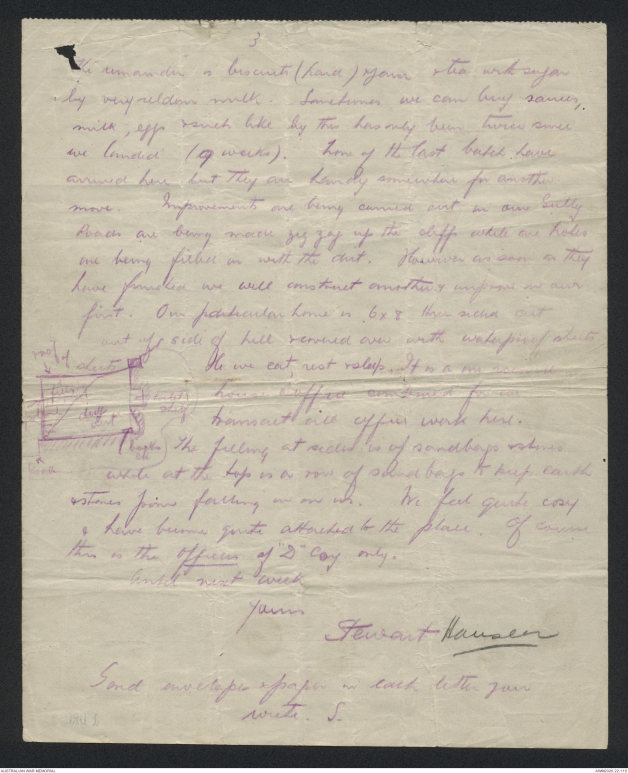 3
The remainder is biscuits (hard) & jam & tea with sugar
by very seldom milk. Sometimes we can buy sauces,
milk, eggs & such like by this has only been twice since
we landed (9 weeks). Some of the last batch have
arrived here but they are handy somewhere for another
move. Improvements are being carried out in our Gully
Roads are being made zig zag up the cliffs while one holes
are being filled in with the dirt. However as soon as they
have finished we will construct another & improve on our
first. Our particular home is 6 x 8 three sides cut
out of side of hill & covered over with waterproof sheets
roof of sheets
He we eat, rest & sleep. It is a
house & office combined for we
dug out
transact all office work here.
The filling at sides is of sandbags & stones
while at the top is a row of sandbags to keep earth
& stones from falling in on us. We feel quite cosy
& have become quite attached to the place. Of course
this is the Officers of "D" Coy only.
Until next week
Yours
Stewart Hansen
Send envelopes & paper in each letter you
write. S.
AUSTRALIAN WAR MEMORIAL